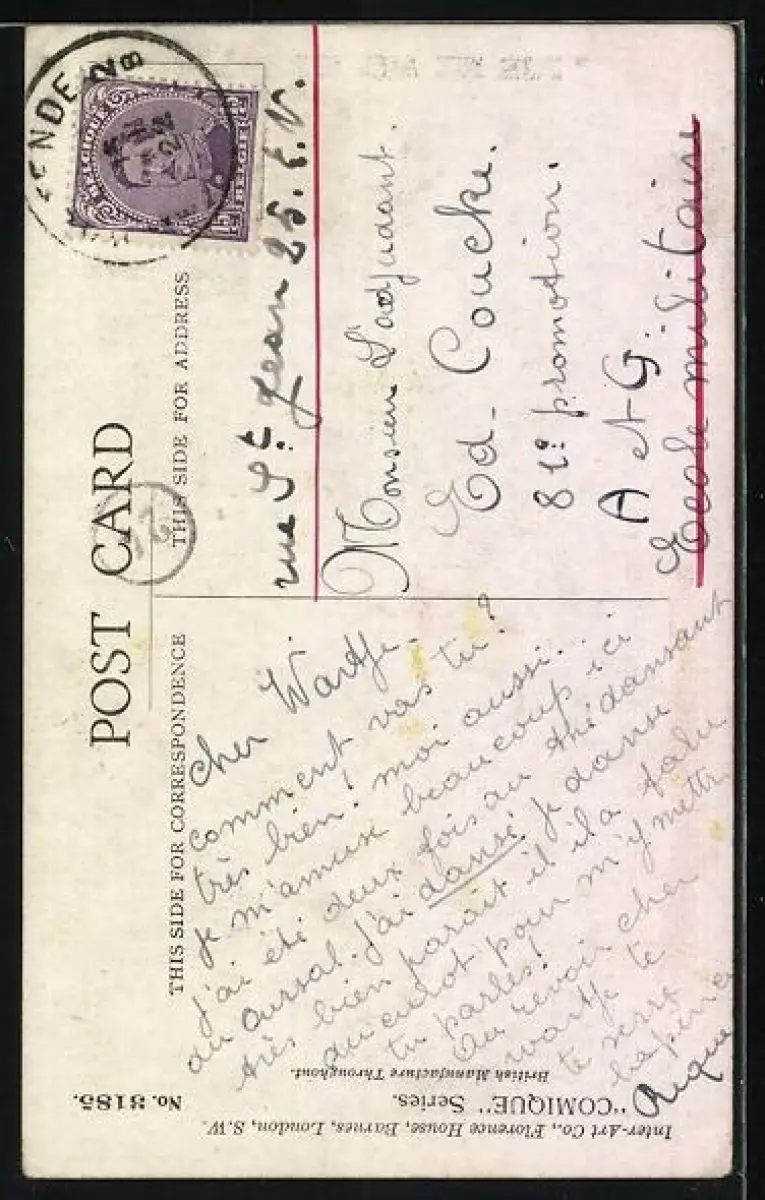 POST CARD
THIS SIDE FOR CORRESPONDENCE
THIS SIDE FOR ADDRESS
BELGIQUE
BELGIË
rue St. Jean 25. E.V.
Monsieur L'adjudant.
Ed. Coucke.
81e promotion.
A et G.
Ecole militaire
Cher Wartje.
comment vas tu?
très bien! moi aussi...
je m'amuse beaucoup ici
j'ai été deux fois au thé dansant
au cursal. J'ai dansé je danse
très bien parait il il a falu
du culot pour m'y mettre
tu parles!
Au revoir cher
wartje te
te serre
la pince
No. 3185.
"COMIQUE" Series.
British Manufacture Throughout.
Inter-Art Co., Florence House, Barnes, London, S.W.